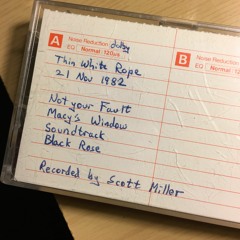 A Noise Reduction dolby
EQ Normal·120us
B Noise Red
EQ Norma
Thin White Rope
21 Nov 1982
Not your Fault
Macy's Window
Soundtrack
Black Rose
Recorded by Scott Miller